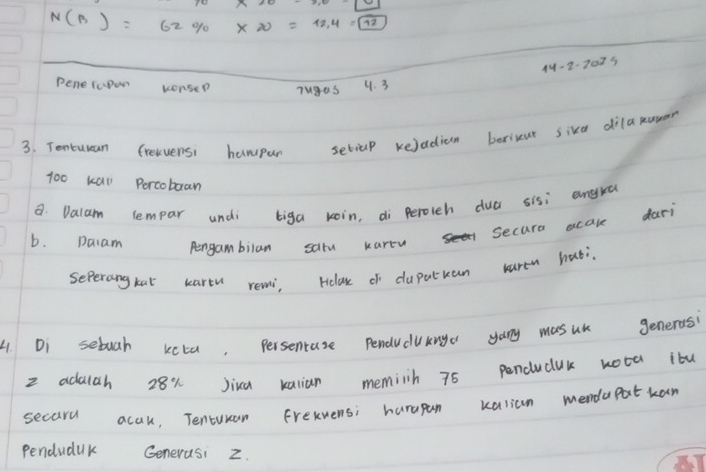 N(B) = 62 % x 20 = 12,4 = 12
Penerapan konsep Tugas 4.3 14-2-2025
3. Tentukan frekuensi harapan setiap kejadian berikut jika dilakukan
100 kali Percobaan
a. Dalam lempar undi tiga koin, di Peroleh dua sisi angka
b. Dalam Pengambilan satu kartu secara acak dari
Seperangkat kartu remi, di dapatkan kartu hati.
4. Di sebuah kota, Persentase Penduduknya yang masuk generasi
z adalah 28% Jika kalian memilih 75 Penduduk kota itu
secara acak, Tentukan Frekuensi harapan kalian mendapatkan
Penduduk Generasi Z.